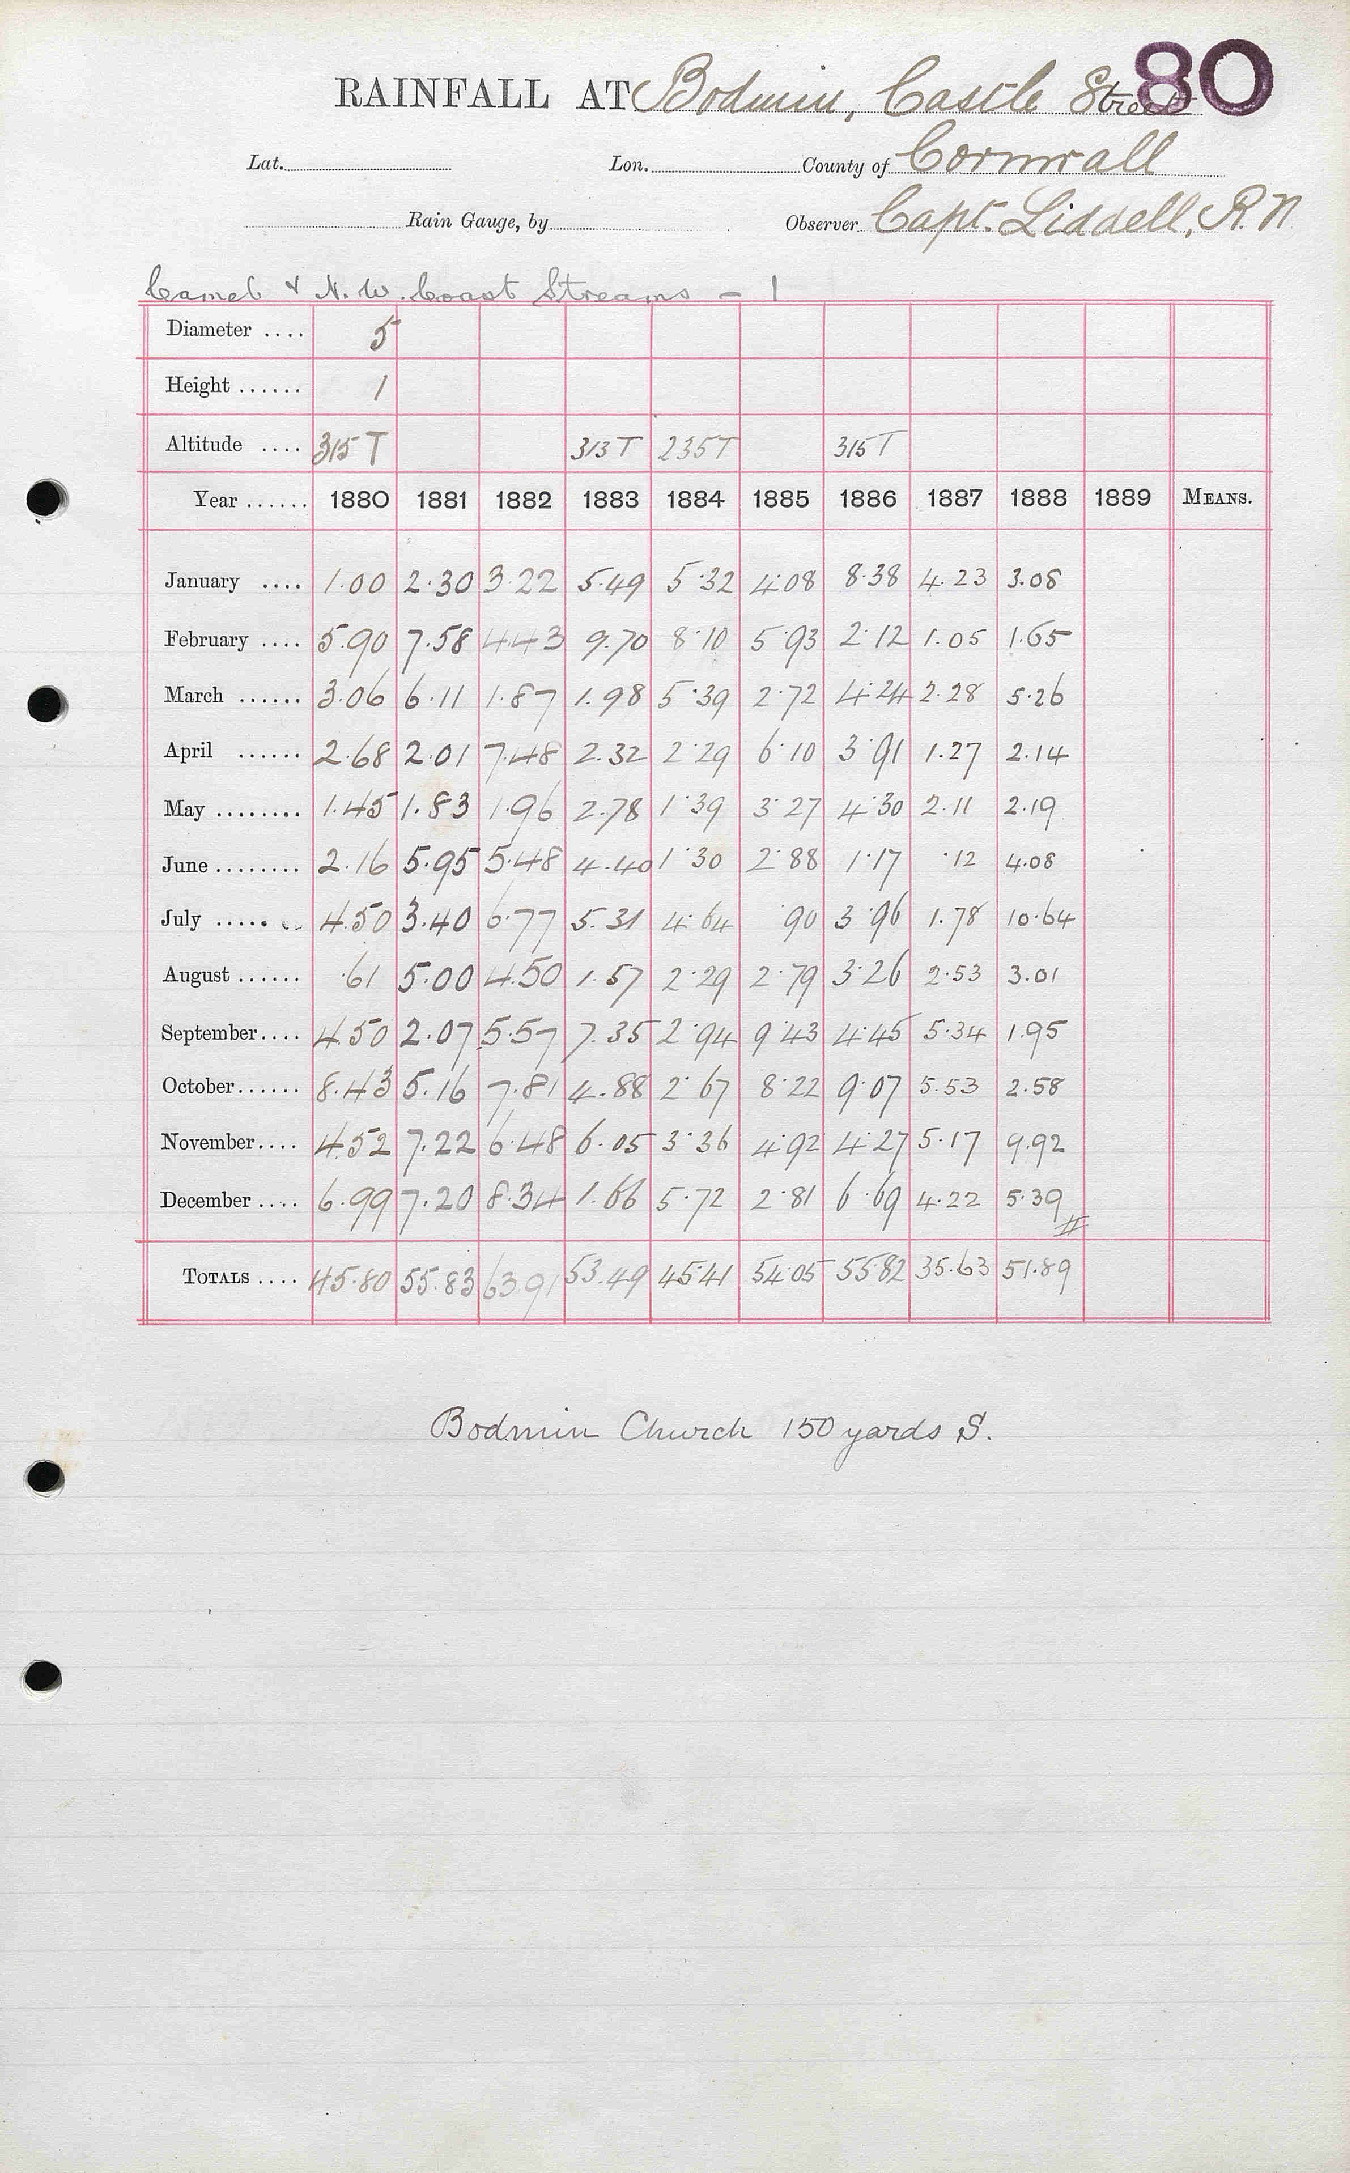 80
RAINFALL AT Bodmin, Castle Street
Lat. Lon. County of Cornwall
Rain Gauge, by Observer Capt. Liddell, R.N
Camel & N.W. Coast Streams - 1
Diameter .... 5
Height ...... 1
Altitude .... 315 T 313 T 235 T 315 T
Year ...... 1880 1881 1882 1883 1884 1885 1886 1887 1888 1889 MEANS.
January .... 1.00 2.30 3.22 5.49 5.32 4.08 8.38 4.23 3.08
February .... 5.90 7.58 4.43 9.70 8.10 5.93 2.12 1.05 1.65
March ...... 3.06 6.11 1.87 1.98 5.39 2.72 4.24 2.28 5.26
April ...... 2.68 2.01 7.48 2.32 2.29 6.10 3.91 1.27 2.14
May ........ 1.45 1.83 1.96 2.78 1.39 3.27 4.30 2.11 2.19
June ........ 2.16 5.95 5.48 4.40 1.30 2.88 1.17 .12 4.08
July ..... 4.50 3.40 6.77 5.31 4.64 .90 3.96 1.78 10.64
August ...... .61 5.00 4.50 1.57 2.29 2.79 3.26 2.53 3.01
September.... 4.50 2.07 5.57 7.35 2.94 9.43 4.45 5.34 1.95
October...... 8.43 5.16 7.81 4.88 2.67 8.22 9.07 5.53 2.58
November.... 4.52 7.22 6.48 6.05 3.36 4.92 4.27 5.17 9.92
December .... 6.99 7.20 8.34 1.66 5.72 2.81 6.69 4.22 5.39
TOTALS .... 45.80 55.83 63.91 53.49 45.41 54.05 55.82 35.63 51.89
Bodmin Church 150 yards S.